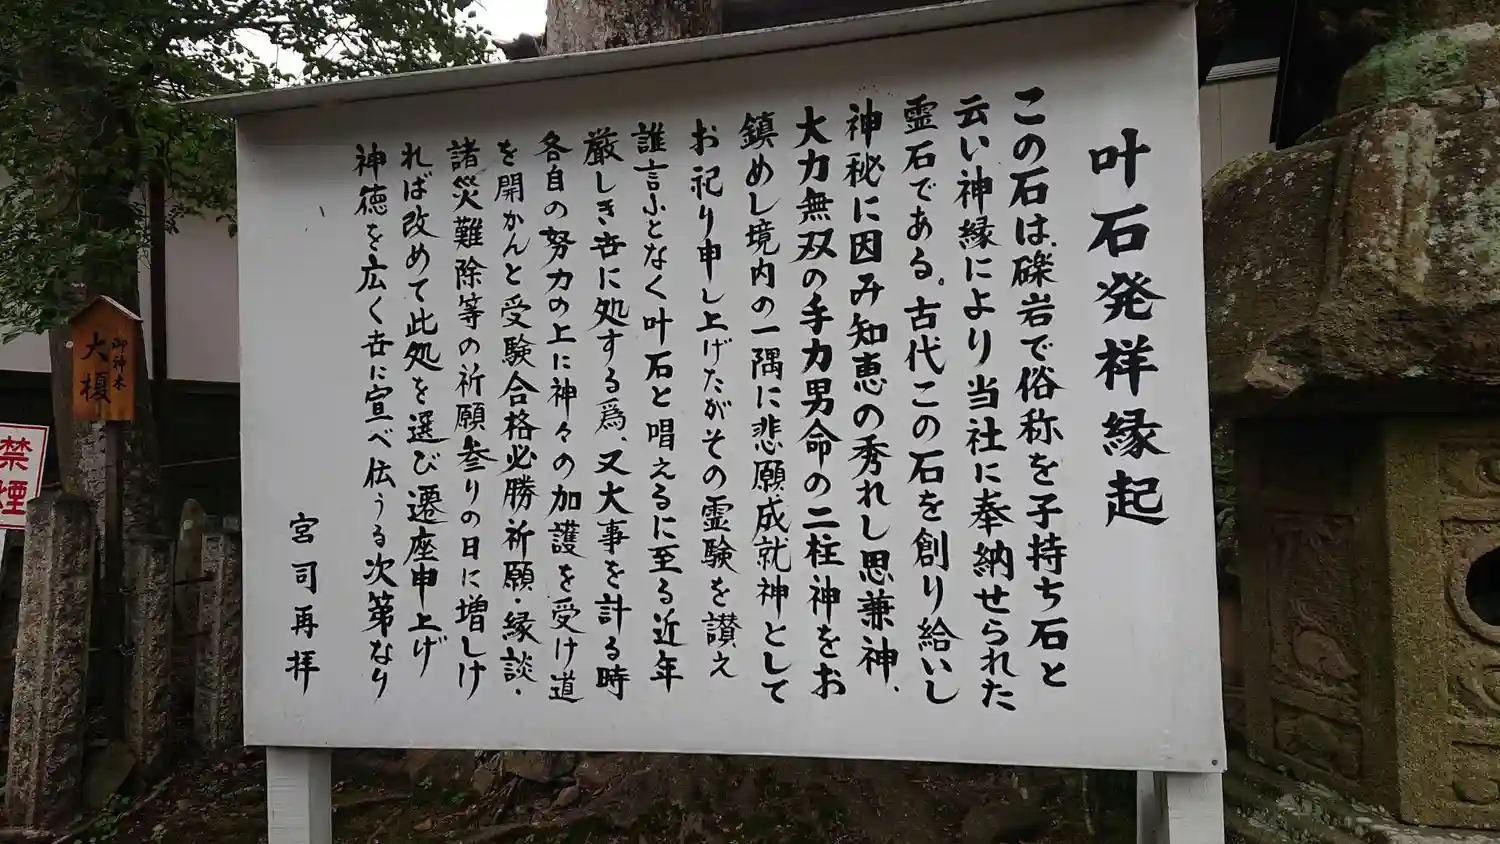 叶石発祥縁起
この石は、礫岩で俗称を子持ち石と
云い神縁により当社に奉納せられた
霊石である。古代この石を創り給いし
神秘に因み知恵の秀れし思兼神、
大力無双の手力男命の二柱神をお
鎮めし境内の一隅に悲願成就神として
お祀り申し上げたがその霊験を讃え
誰言ふとなく叶石と唱えるに至る近年
厳しき世に処する為、又大事を計る時
各自の努力の上に神々の加護を受け道
を開かんと受験合格必勝祈願・縁談・
諸災難除等の祈願参りの日に増しけ
れば改めて此処を選び遷座申上げ
神徳を広く世に宣べ伝うる次第なり
宮司再拝
御神木
大榎
禁
煙